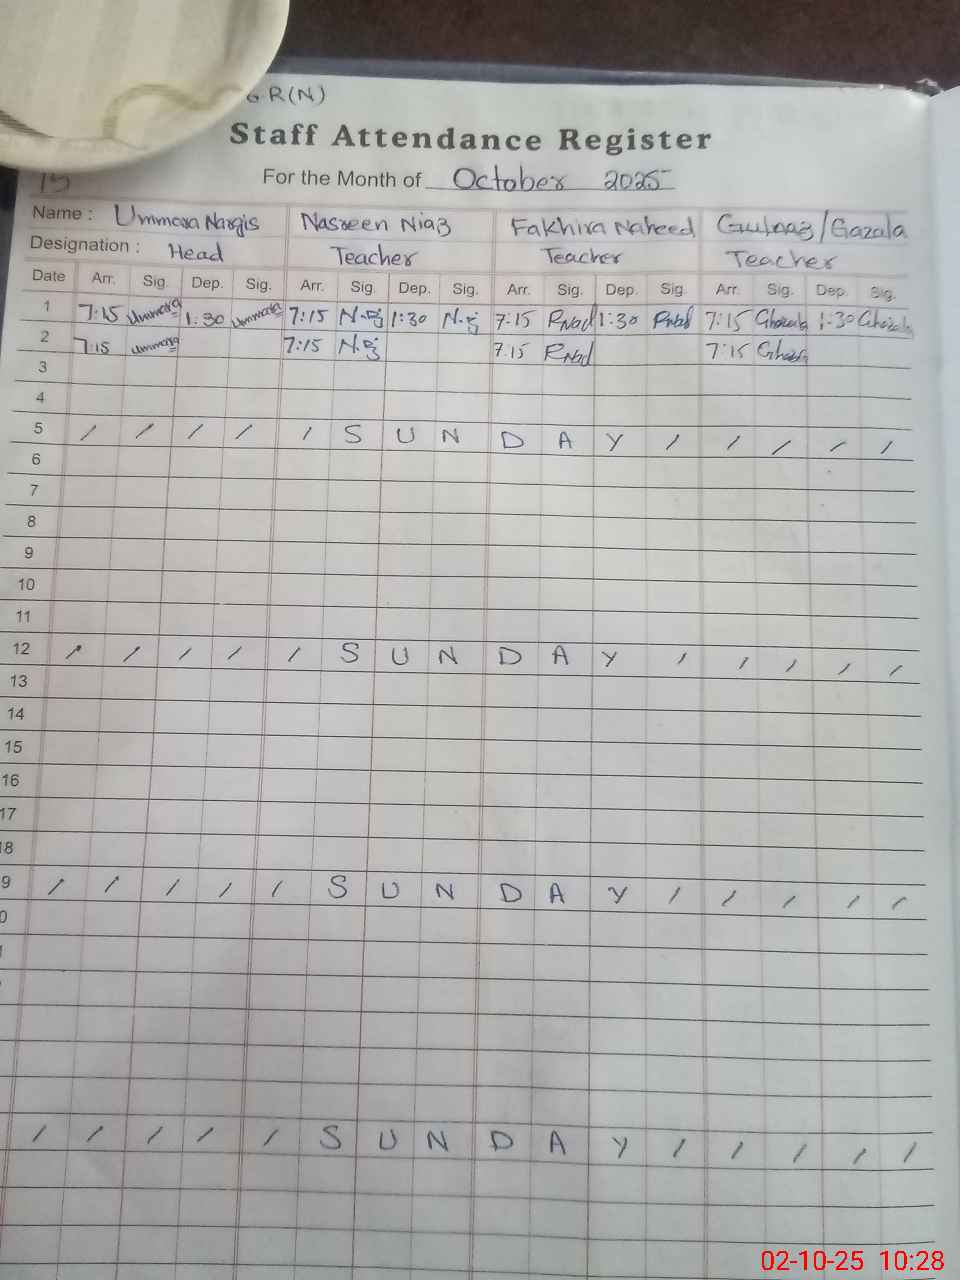 G R(N)
Staff Attendance Register
For the Month of October 2025
15
Name : Ummara Nargis Nasreen Niaz Fakhira Naheed Gulnaaz/Gazala
Designation : Head Teacher Teacher Teacher
Date Arr. Sig. Dep. Sig. Arr. Sig. Dep. Sig. Arr. Sig. Dep. Sig. Arr. Sig. Dep. Sig.
1 7:15 Ummara 1:30 Ummara 7:15 1:30 7:15 1:30 7:15 1:30
2 7:15 Ummara 7:15 7:15 7:15
3
4
5 / / / / / S U N D A Y / / / / /
6
7
8
9
10
11
12 / / / / / S U N D A Y / / / / /
13
14
15
16
17
18
9 / / / / / S U N D A Y / / / / /
0
/ / / / / S U N D A Y / / / / /
02-10-25 10:28